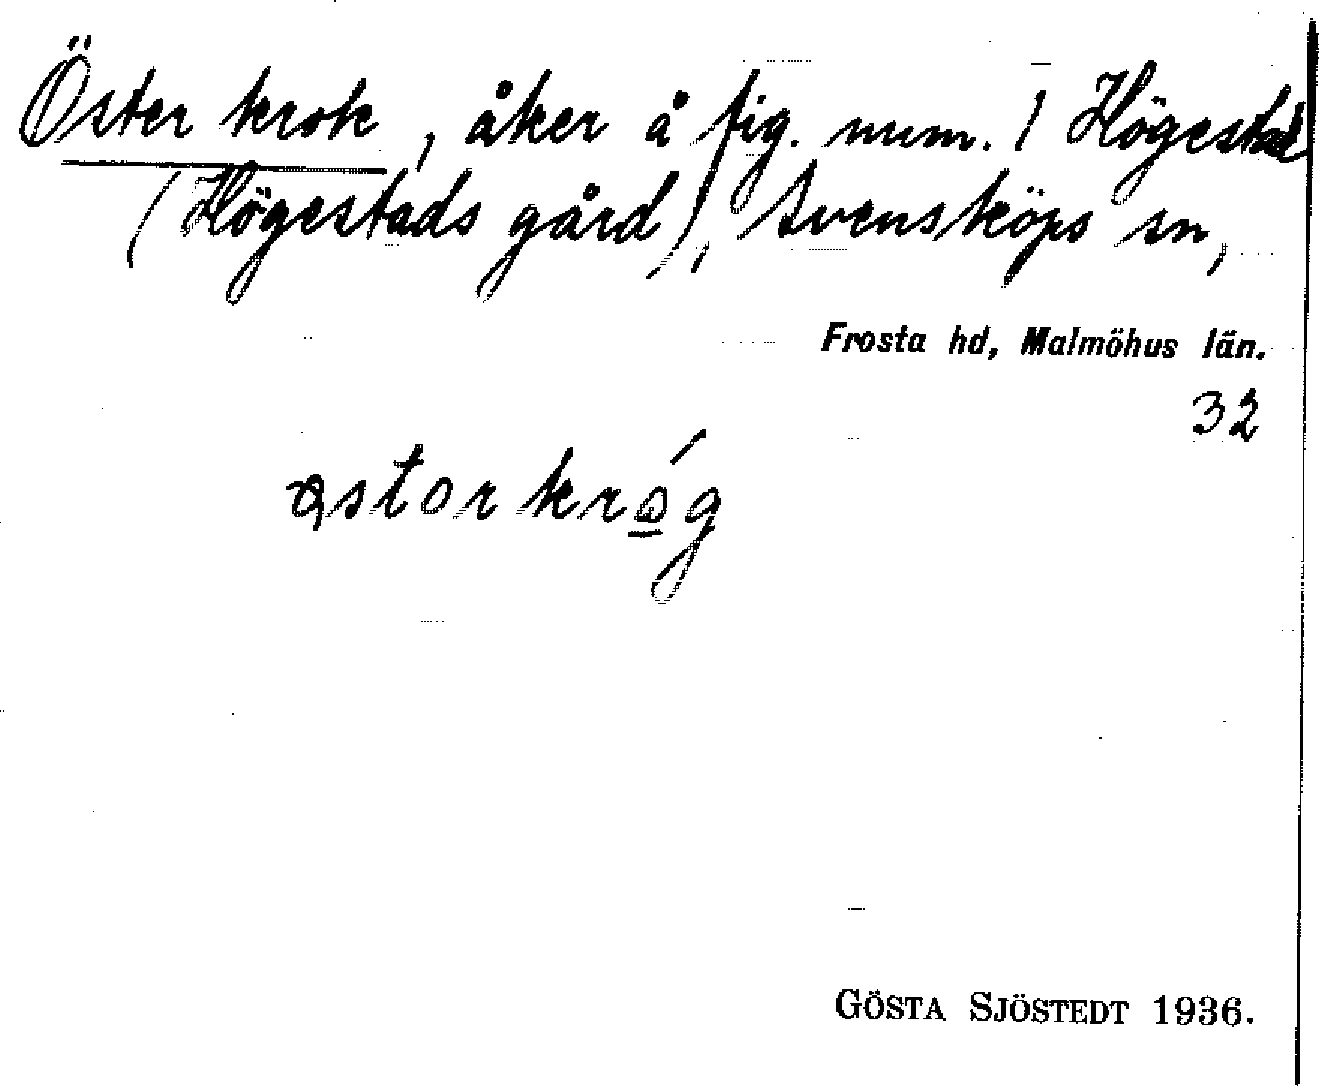 Öster krok, åker å fig. num. 1 Högestad
(Högestads gård), Svensköps sn,
Frosta hd, Malmöhus län.
32
østor krǫ́g
GÖSTA SJÖSTEDT 1936.